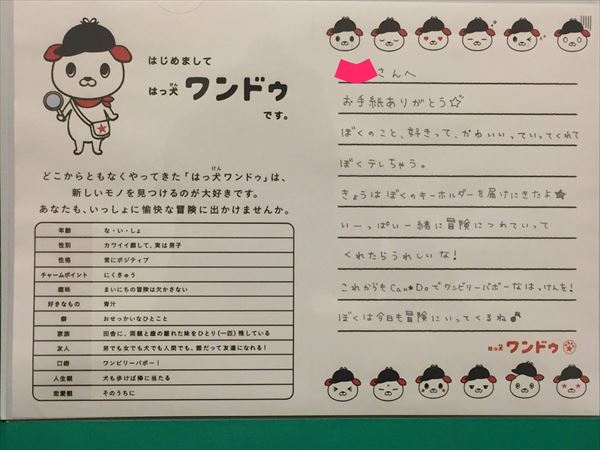 はじめまして
はっ犬 ワンドゥ
けん
です。
どこからともなくやってきた「はっ犬ワンドゥ」は、
けん
新しいモノを見つけるのが大好きです。
あなたも、いっしょに愉快な冒険に出かけませんか。
年齢 な・い・しょ
性別 カワイイ顔して、実は男子
性格 常にポジティブ
チャームポイント にくきゅう
趣味 まいにちの冒険は欠かさない
好きなもの 青汁
癖 おせっかいなひとこと
家族 田舎に、両親と歳の離れた妹をひとり(一匹)残している
友人 男でも女でも犬でも人間でも、誰だって友達になれる!
口癖 ワンビリーバボー!
人生観 犬も歩けば棒に当たる
恋愛観 そのうちに
さんへ
お手紙ありがとう☆
ぼくのこと、好きって、かわいいっていってくれて
ぼくテレちゃう。
きょうはぼくのキーホルダーを届けにきたよ★
いーっぱい一緒に冒険につれていって
くれたらうれしいな!
これからもCan★Doでワンビリーバボーなはっけんを!
ぼくは今日も冒険にいってくるね♪
はっ犬 ワンドゥ